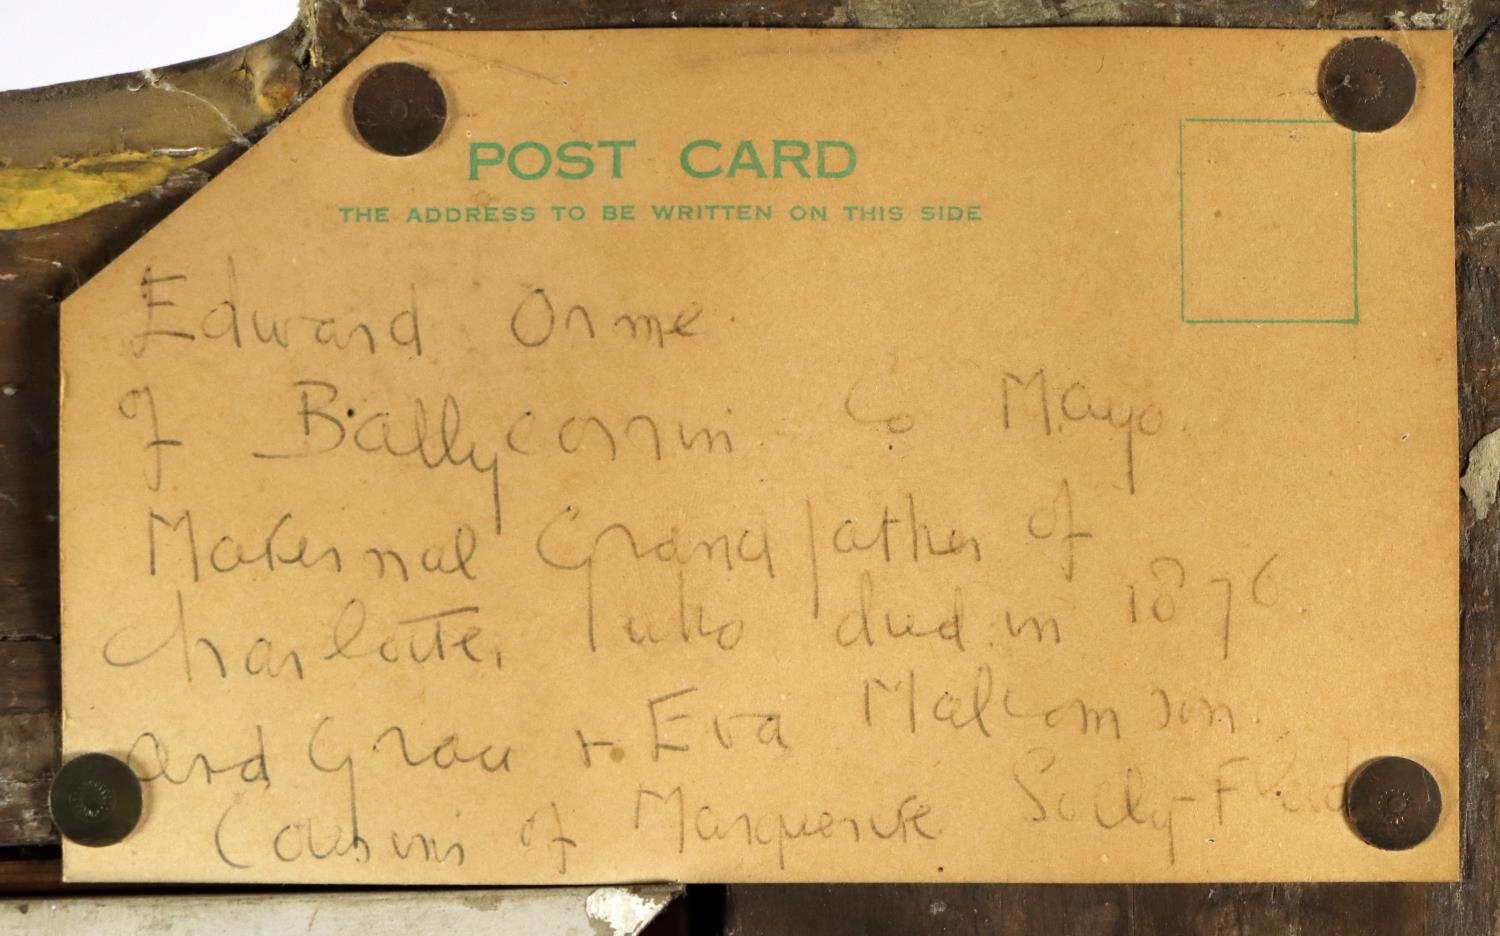 POST CARD
THE ADDRESS TO BE WRITTEN ON THIS SIDE
Edward Orme
of Ballycorrin Co Mayo.
Maternal Grandfather of
Charlotte, who died in 1876.
and Grace + Eva Malcomson
Cousins of Marguerite Solly-Flood